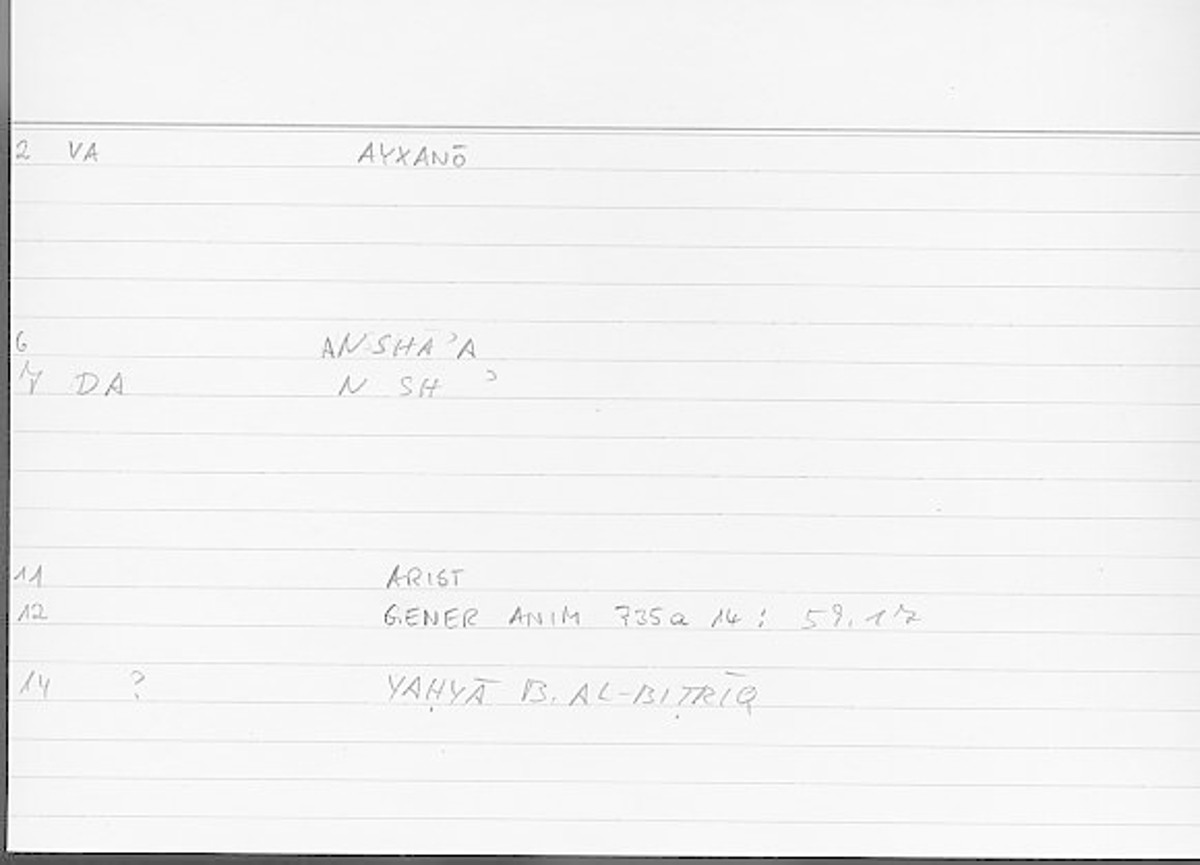 2 VA AYXANŌ
6 ANSHAʾA
7 DA N SH ʾ
11 ARIST
12 GENER ANIM 735a 14 : 59.17
14 ? YAḤYĀ B. AL-BIṬRĪQ